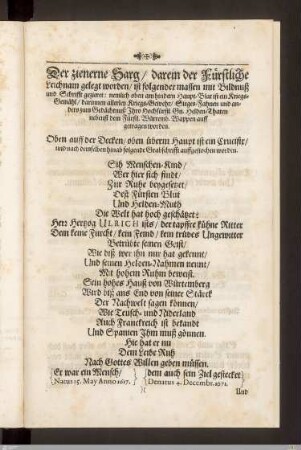 Der zienerne Sarg / darein der Fürstliche
Leichnam gelegt worden / ist folgender massen mit Bildnuß
und Schrifft gezieret: nemlich oben am hindern Haupt-Blat ist ein Kriegs-
Gemähl / darinnen allerley Kriegs-Gewehr / Sieges-Fahnen und an-
ders zum Gedächtnus Ihro Hochfürstl. Gn. Helden-Thaten
nebenst dem Fürstl. Würtemb. Wappen auff-
getragen worden.
Oben auff der Decken / oben überm Haupt ist ein Crucifix /
und nach demselben hinab folgende Grabschrifft auffgestochen worden.
Sih Menschen-Kind /
Wer hier sich findt /
Zur Ruhe beygesetzet /
Deß Fürsten Blut
Und Helden-Muth
Die Welt hat hoch geschätzet:
Herr Hertzog ULRICH ists / der tapffre kühne Ritter
Dem keine Furcht / kein Feind / kein trübes Ungewitter
Betrübte seinen Geist /
Wie diß wer ihn nur hat gekennt /
Und seinen Helden-Nahmen nennt /
Mit hohem Ruhm beweist.
Sein hohes Hauß von Würtemberg
Wird biß ans End von seiner Stärck
Der Nachwelt sagen können /
Wie Teusch- und Niderland
Auch Franckreich ist bekandt
Und Spanien Ihm muß gönnen.
Hie hat er nu
Dem Leibe Ruh
Nach Gottes Willen geben müssen.
Er war ein Mensch / dem auch sein Ziel gestecket
Natus 15. May Anno 1617. Denatus 4. Decembr. 1671.
Und